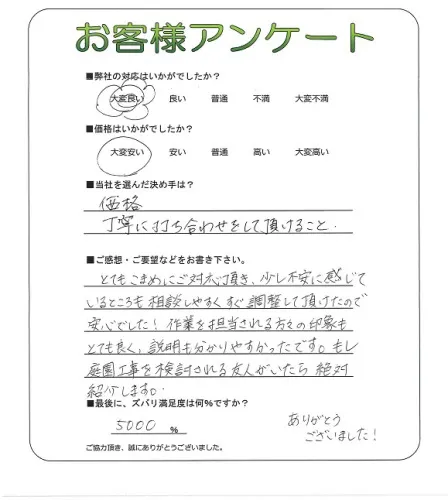 お客様アンケート
■弊社の対応はいかがでしたか？
大変良い 良い 普通 不満 大変不満
■価格はいかがでしたか？
大変安い 安い 普通 高い 大変高い
■当社を選んだ決め手は？
価格
丁寧に打ち合わせをして頂けること.
■ご感想・ご要望などをお書き下さい。
とてもこまめにご対応頂き、少し不安に感じて
いるところも相談しやすくすぐ調整して頂けたので
安心でした！作業を担当される方々の印象も
とても良く、説明も分かりやすかったです。もし
庭園工事を検討される友人がいたら絶対
紹介します。
■最後に、ズバリ満足度は何%ですか？
5000 %
ありがとう
ございました！
ご協力頂き、誠にありがとうございました。